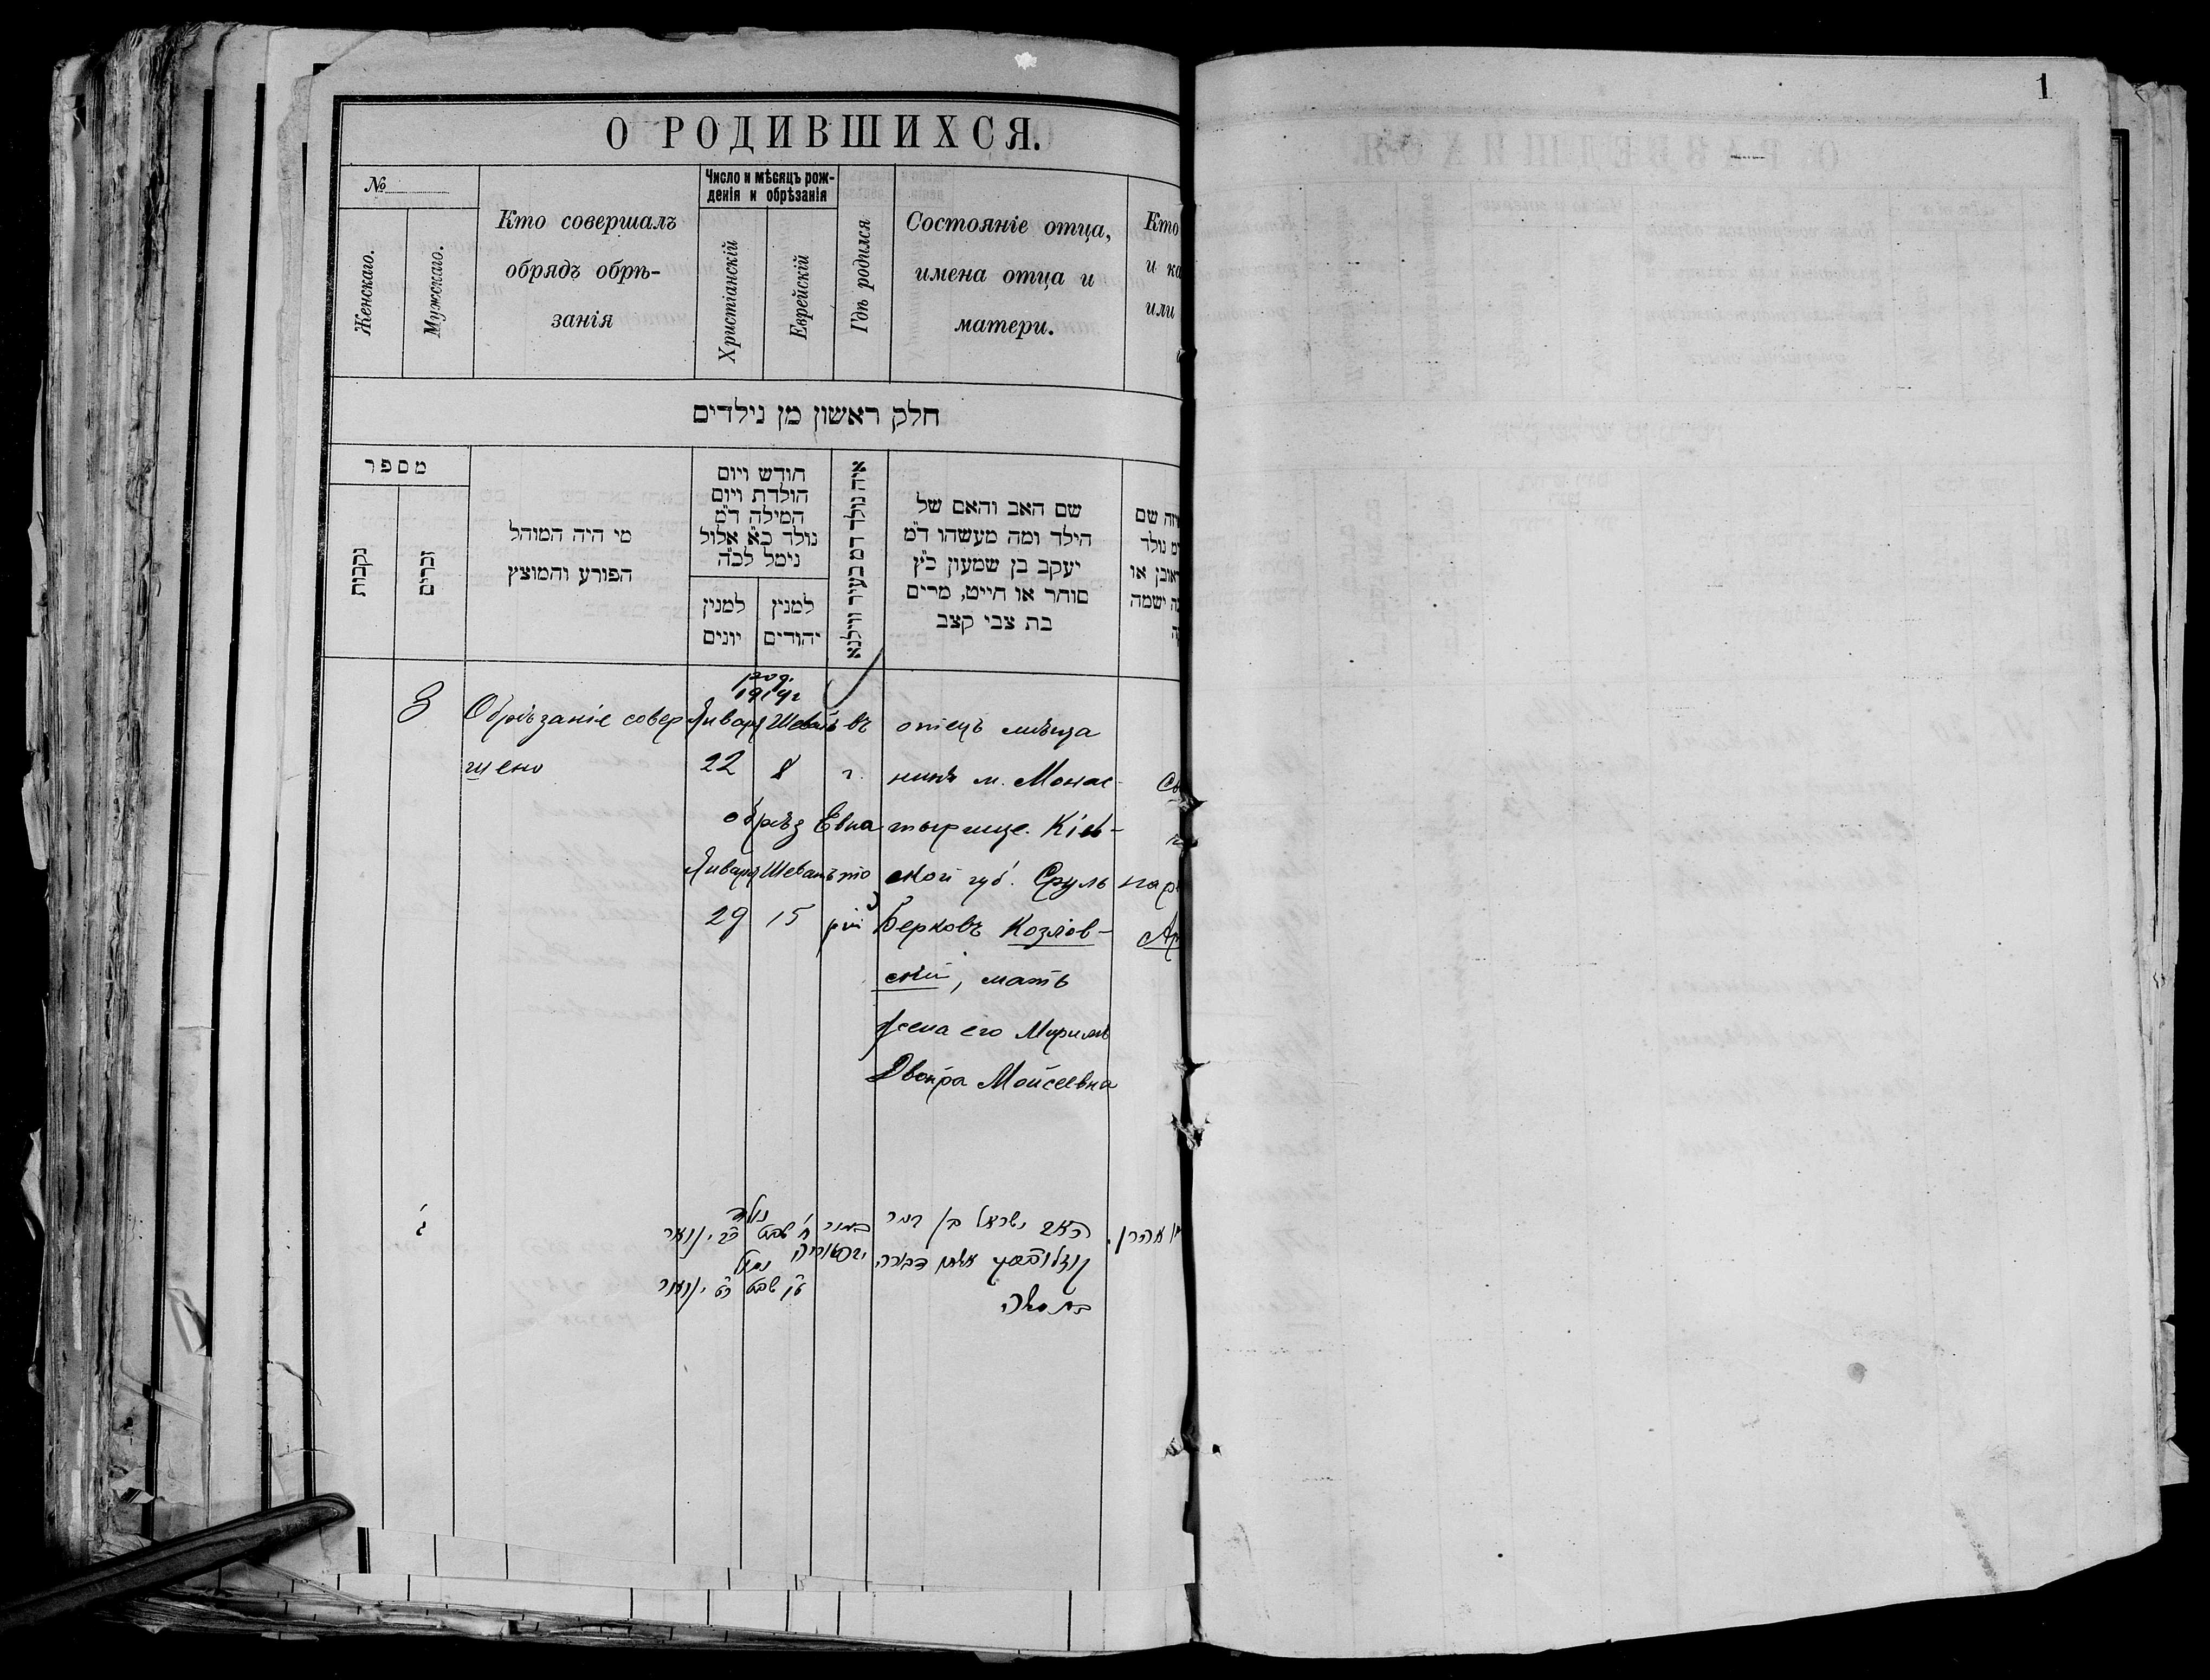 1
О РОДИВШИХСЯ.
№
Женскаго.
Мужскаго.
Кто совершалъ
обрядъ обрѣ-
занія
Число и мѣсяцъ рож-
денія и обрѣзанія
Христіанскій
Еврейскій
Гдѣ родился
Состояніе отца,
имена отца и
матери.
Кто
и ка
или
חלק ראשון מן נילדים
מספר
נקבות
זכרים
מי היה המוהל
הפורע והמוצץ
חודש ויום
הולדת ויום
המילה ד"מ
נולד כ"א אלול
נימל לכ"ה
למנין
יונים
למנין
יהודים
איה נולד דמ בעיר ווילנא
שם האב והאם של
הילד ומה מעשהו ד"מ
יעקב בן שמעון כ"ץ
סוחר או חייט, מרים
בת צבי קצב
שם
נולד
ראובן או
ישמה
3
Обрѣзаніе совер
шено
род.
1914г
Января Шеватъ
22 8
обрѣз
Января Шеватъ
29 15
въ
г.
Евпа
то
ріи
отецъ мѣща
нинъ м. Монас-
тырище. Кіев-
ской губ. Сруль
Берковъ Козлов-
скій, мать
жена его Мириамъ
Двойра Моисеевна
нар
Ар
ג'
נולד
ח' שבט כ"ב ינואר
נימול
ט"ו שבט כ"ט ינואר
האב ישראל בן
קוזלובסקי דבורה
בת משה
אהרן.